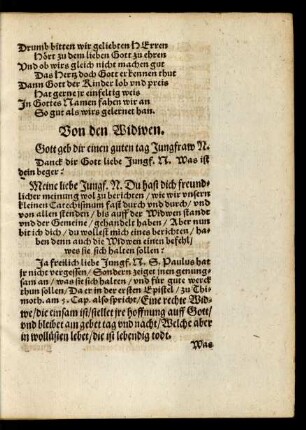 Drumb bitten wir geliebten HErren
Hört zu dem lieben Gott zu ehren
Und ob wirs gleich nicht machen gut
Das Hertz doch Gott erkennen thut
Dann Gott der Kinder lob und preis
Hat gerne jr einfeltig weis
In Gottes Namen fahen wir an
So gut als wirs gelernet han.
Von den Widwen.
Gott geb dir einen guten tag Jungfraw N.
Danck dir Gott liebe Jungf. N. Was ist
dein beger?
Meine liebe Jungf. N. Du hast dich freund-
licher meinung wol zu berichten/ wie wir unsern
kleinen Catechismum fast durch und durch/ und
von allen stenden/ bis auff der Widwen stande
und der Gemeine/ gehandelt haben/ Aber nun
bit ich dich/ du wollest mich eines berichten/ ha-
ben denn auch die Widwen einen befehl/
wes sie sich halten sollen?
Ja freilich liebe Jungf. N. S. Paulus hat
jr nicht vergessen/ Sondern zeiget jnen genung-
sam an/ was sie sich halten/ und für gute werck
thun sollen/ Da er in der ersten Epistel/ zu Thi-
moth. am 5. Cap. also spricht/ Eine rechte Wid-
we/ die einsam ist/ stellet jre hoffnung auff Gott/
und bleibet am gebet tag und nacht/ Welche aber
in wollüsten lebet/ die ist lebendig todt.
Was